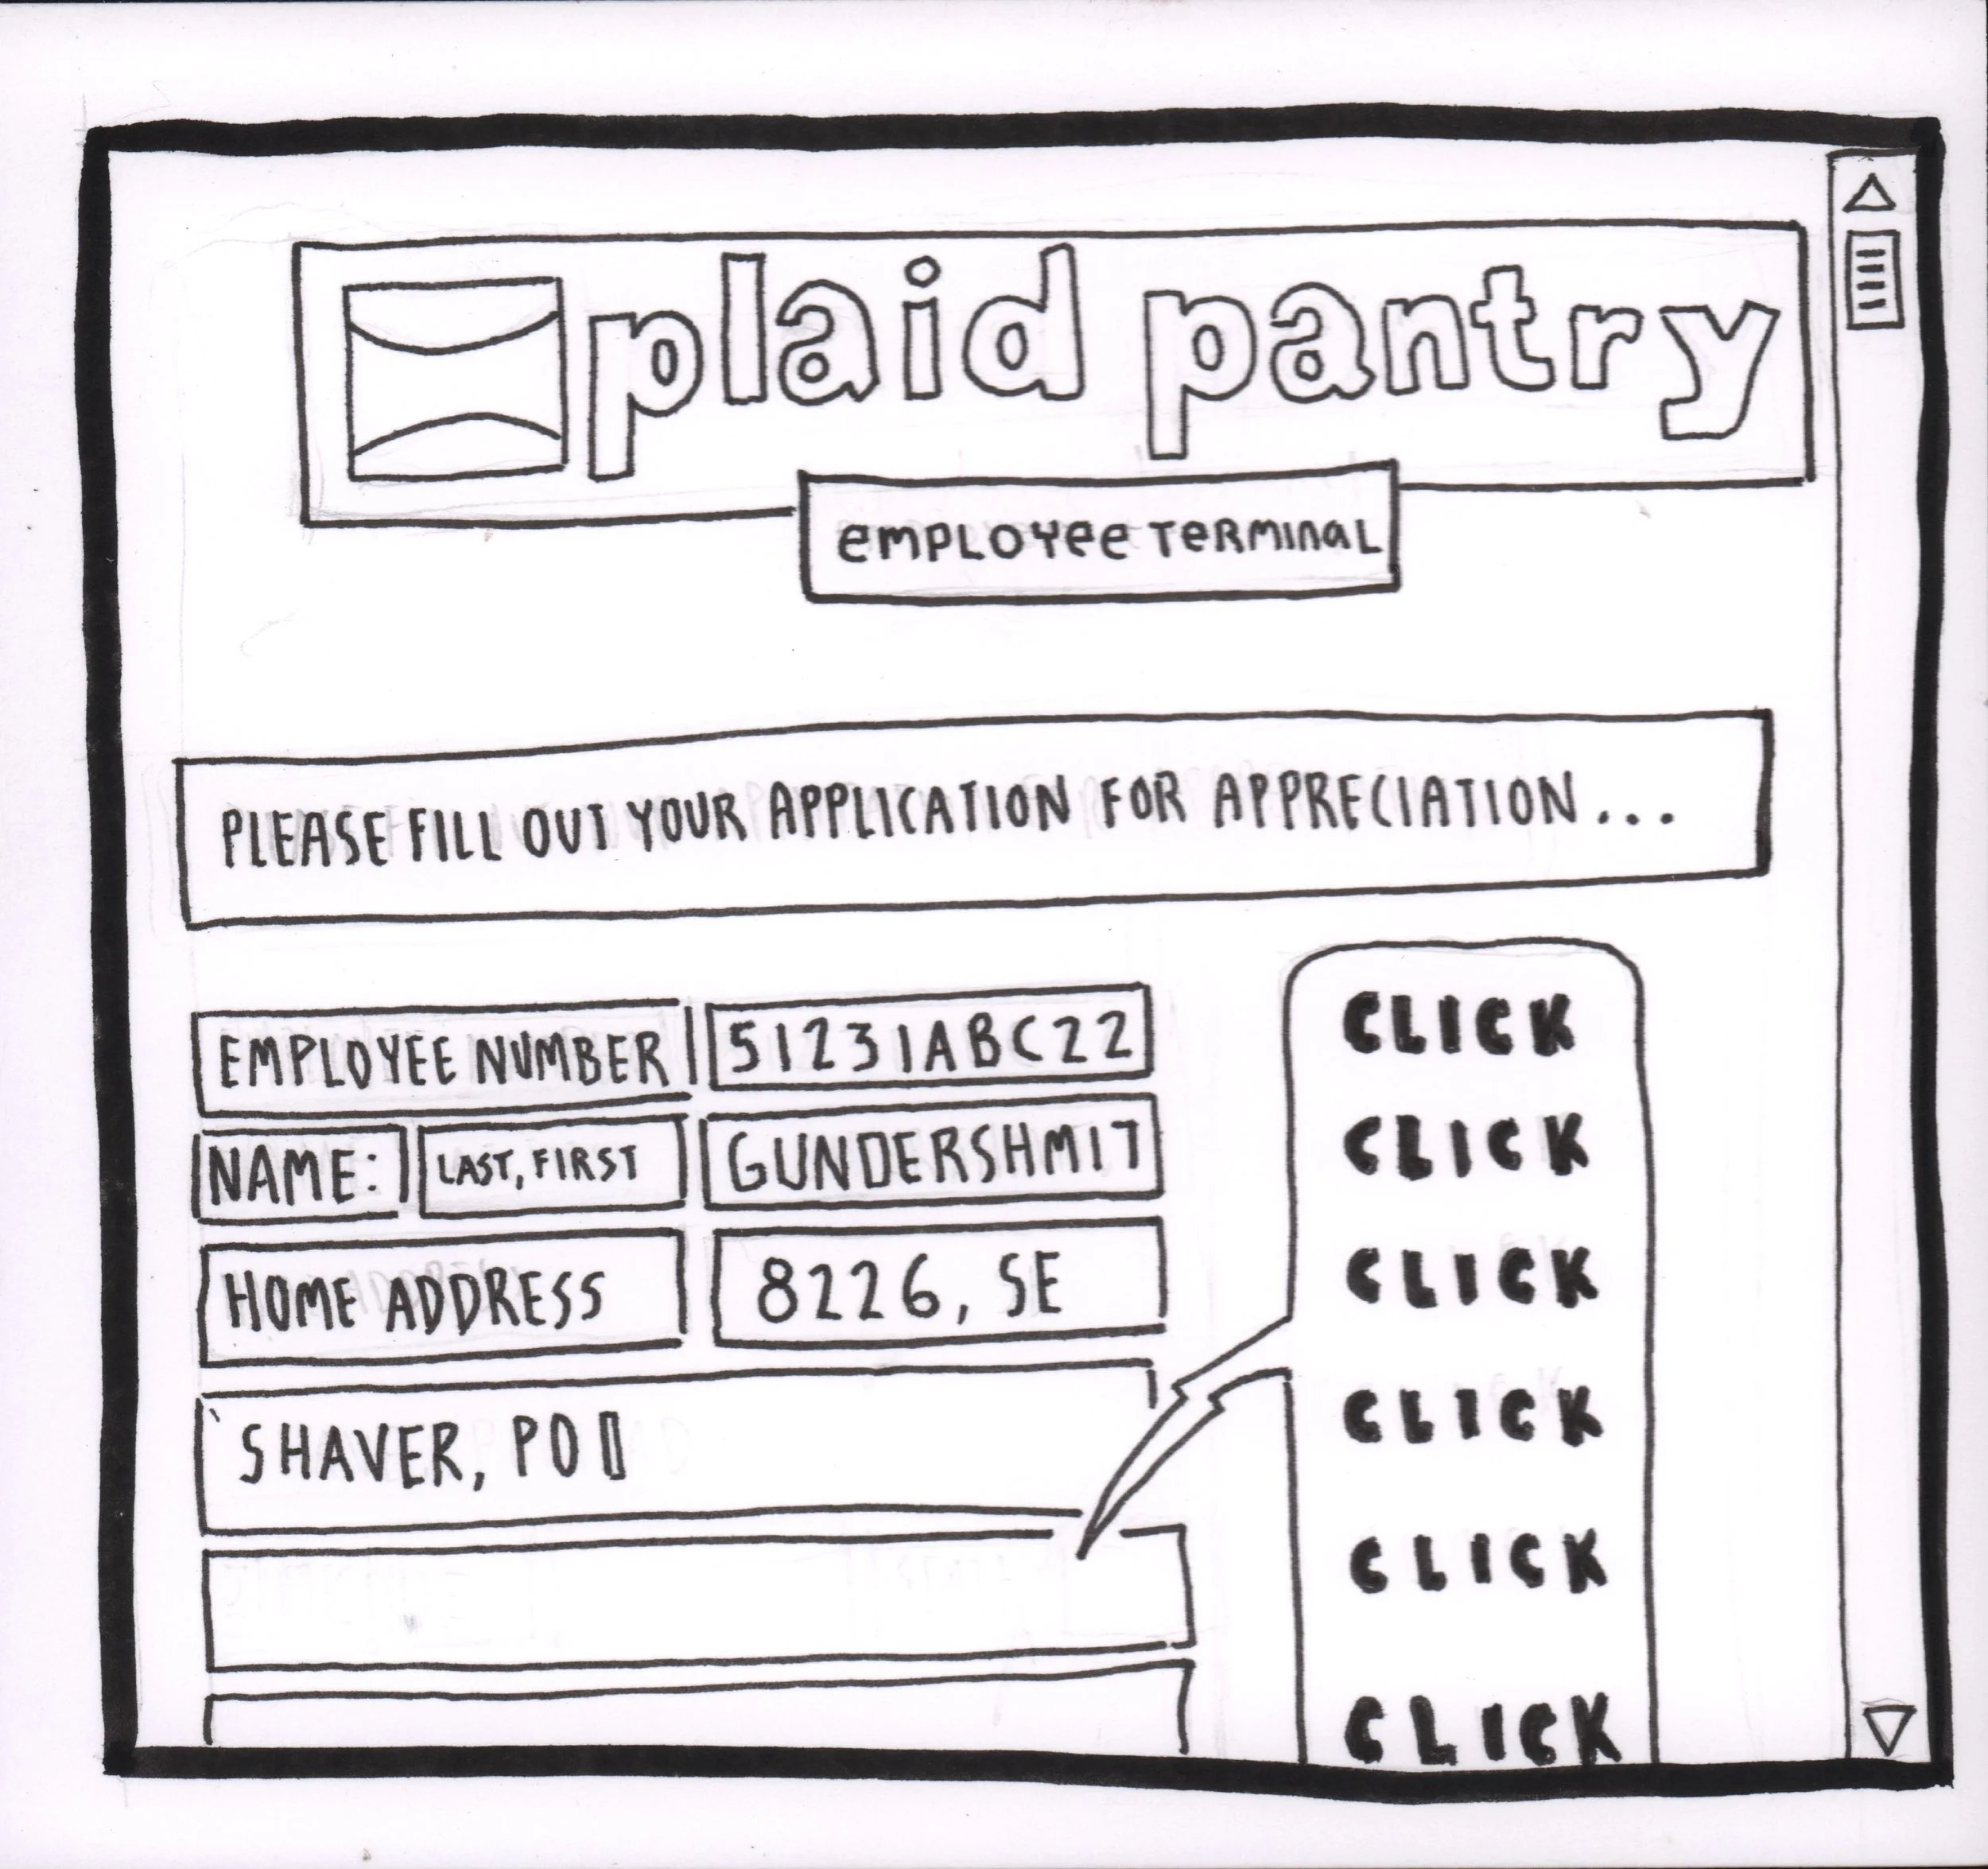 plaid pantry
eMPLOYee TeRMINaL
PLEASE FILL OUT YOUR APPLICATION FOR APPRECIATION...
EMPLOYEE NUMBER 51231ABC22
NAME: LAST, FIRST GUNDERSHMIT
HOME ADDRESS 8226, SE
SHAVER, PO
CLICK
CLICK
CLICK
CLICK
CLICK
CLICK